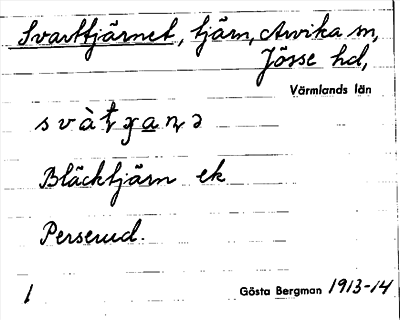 Svarttjärnet, tjärn, Arvika sn,
Jösse hd,
Värmlands län
Bläcktjärn ek
Perserud.
1 Gösta Bergman 1913-14